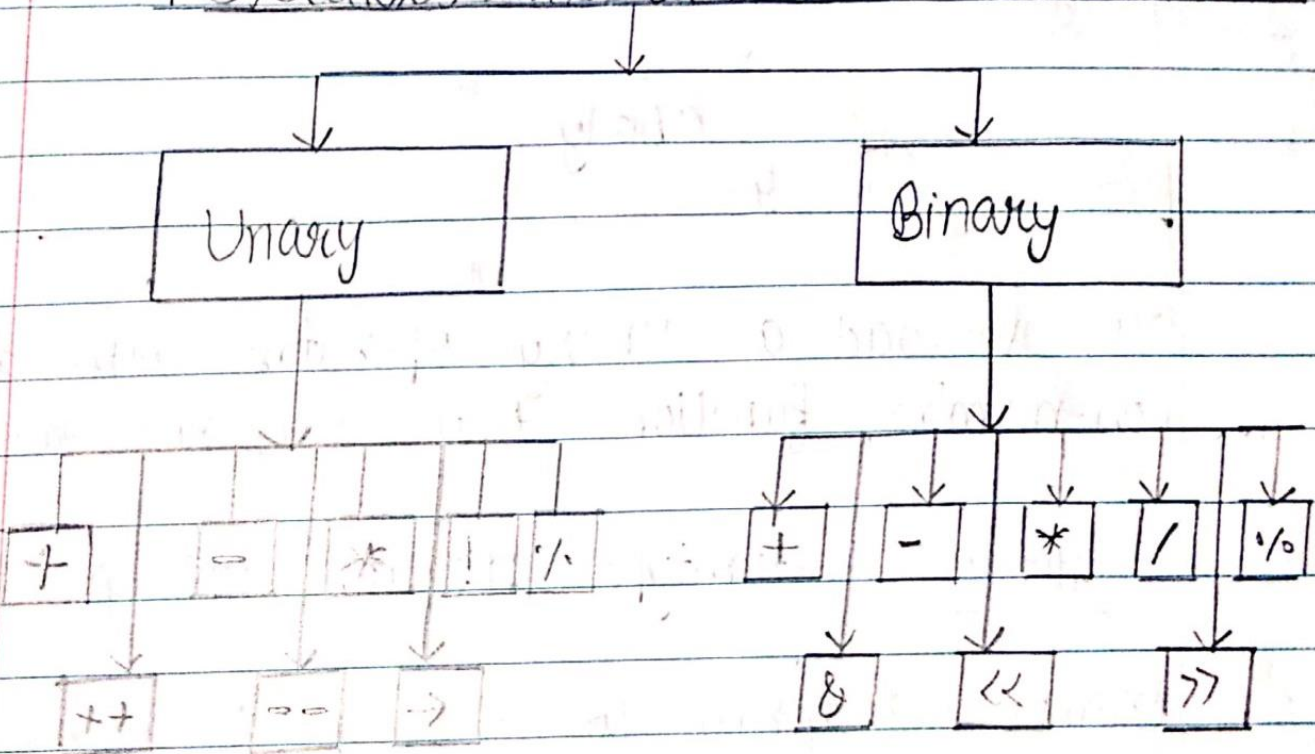 Unary Binary
+ - * ! % + - * / %
++ -- → & << >>